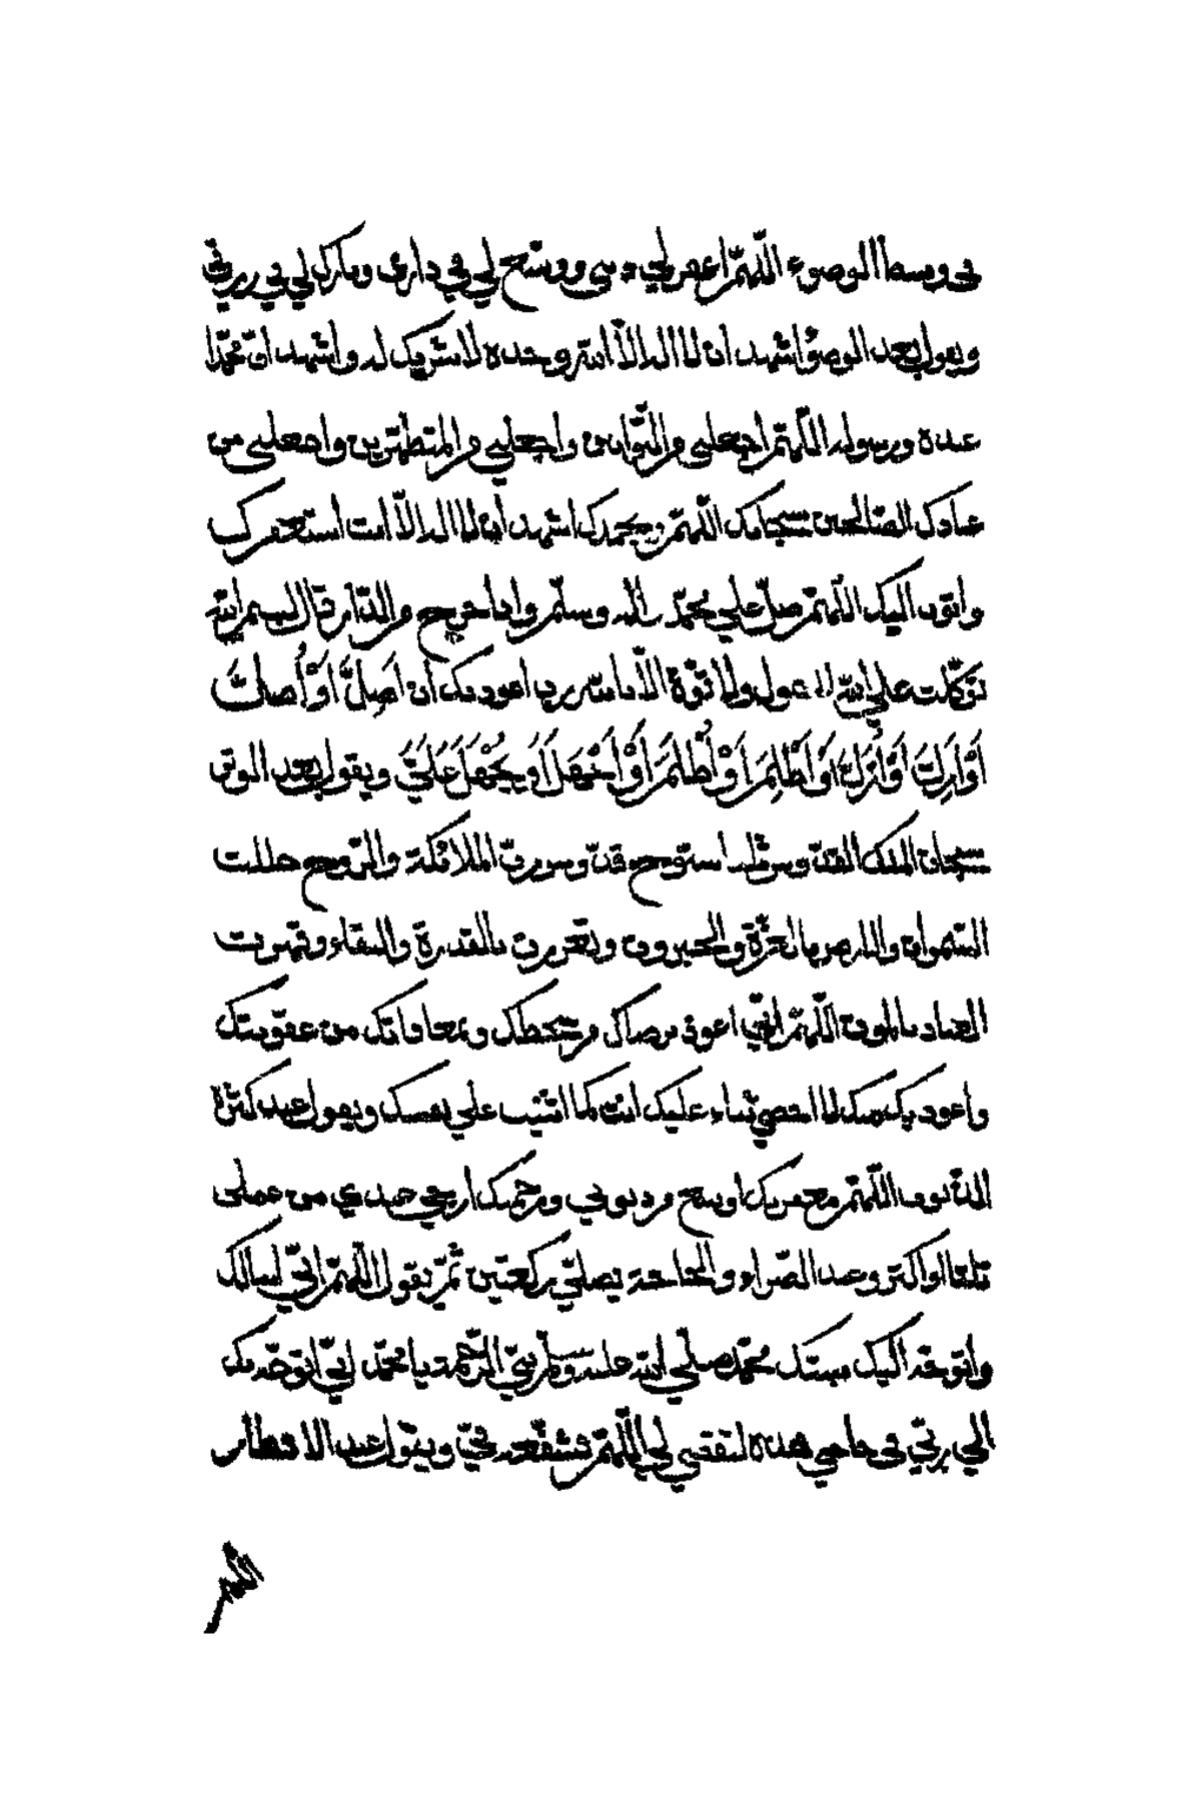 في وسط الوضوء اللهمّ اغفر لي ذنبي ووسّع لي في داري وبارك لي في رزقي
ويقول بعد الوضوء اشهد ان لا اله الاّ الله وحده لا شريك له واشهد انّ محمّدا
عبده ورسوله اللهمّ اجعلني من التّوّابين واجعلني من المتطهّرين واجعلني من
عبادك الصّالحين سبحانك اللهمّ وبحمدك اشهد ان لا اله الاّ انت استغفرك
واتوب اليك اللهمّ صلّ علي محمّد واله وسلّم واذا خرج من الدّار قال بسم الله
توكّلت علي الله لا حول ولا قوّة الاّ بالله ربّ اعوذ بك ان اَضِلَّ اَوْ اُضلّ
اَوْ اَزِلَّ اَوْ اُزَلَّ اَوْ اَظْلِمَ اَوْ اُظْلَمَ اَوْ اَجْهَلَ اَوْ يُجْهَلَ عَلَيَّ ويقول بعد الوتر
سبحان الملك القدّوس سبّوح قدّوس ربّ الملائكة والرّوح جللت
السّموات والارض بالعزّة والجبروت وتعززت بالقدرة والبقاء وقهرت
العباد بالموت اللّهمّ انّي اعوذ برضاك من سخطك وبمعافاتك من عقوبتك
واعوذ بك منك لا احصي ثناء عليك انت كما اثنيت علي نفسك ويقول عند كثرة
الذّنوب اللّهمّ مغفرتك اوسع من ذنوبي ورحمتك ارجي عندي من عملي
ثلثا او اكثر وعند الضّراء والحاجة يصلّي ركعتين ثمّ يقول اللّهمّ انّي اسالك
واتوجّه اليك بنبيّك محمّد صلّي الله عليه وسلّم نبيّ الرّحمة يا محمّد انّي اتوجّه بك
الي ربّي في حاجتي هذه لتقضي لي اللّهمّ فشفّعه فيّ ويقول عند الافطار
اللّهمّ